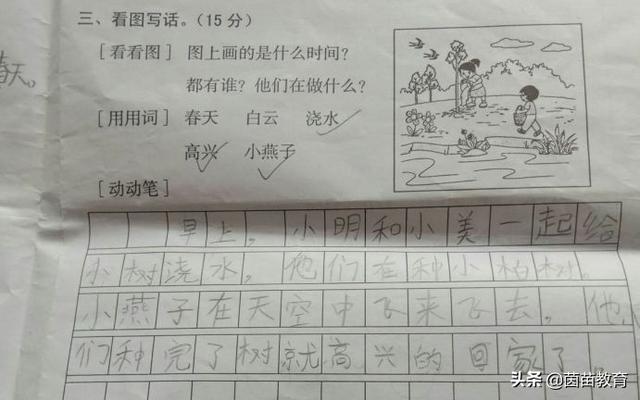 春天。
三、看图写话。（15 分）
[ 看看图 ] 图上画的是什么时间？
都有谁？他们在做什么？
[ 用用词 ] 春天 白云 浇水
高兴 小燕子
[ 动动笔 ]
早上，小明和小美一起给
小树浇水，他们在种小柏树。
小燕子在天空中飞来飞去，他
们种完了树就高兴的回家了。
头条 @茵苗教育